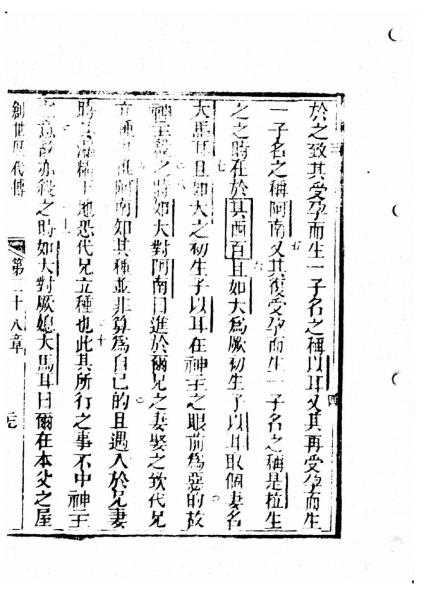 於之致其受孕而生一子名之稱以耳又其再受孕而生
一子名之稱阿南又其復受孕而生一子名之稱是拉生
之之時在於其西百且如大為厥初生子以耳取個妻名
大馬耳且如大之初生子以耳在神主之眼前為惡的故
神主殺之時如大對阿南曰進於爾兄之妻娶之致代兄
立種阿南知其種並非算為自己的且遇入於兄妻
時其種下地恐代兄立種也此其所行之事不中神主
意故亦殺之時如大對厥媳大馬耳曰爾在本父之屋
創世歷代傳 第三十八章